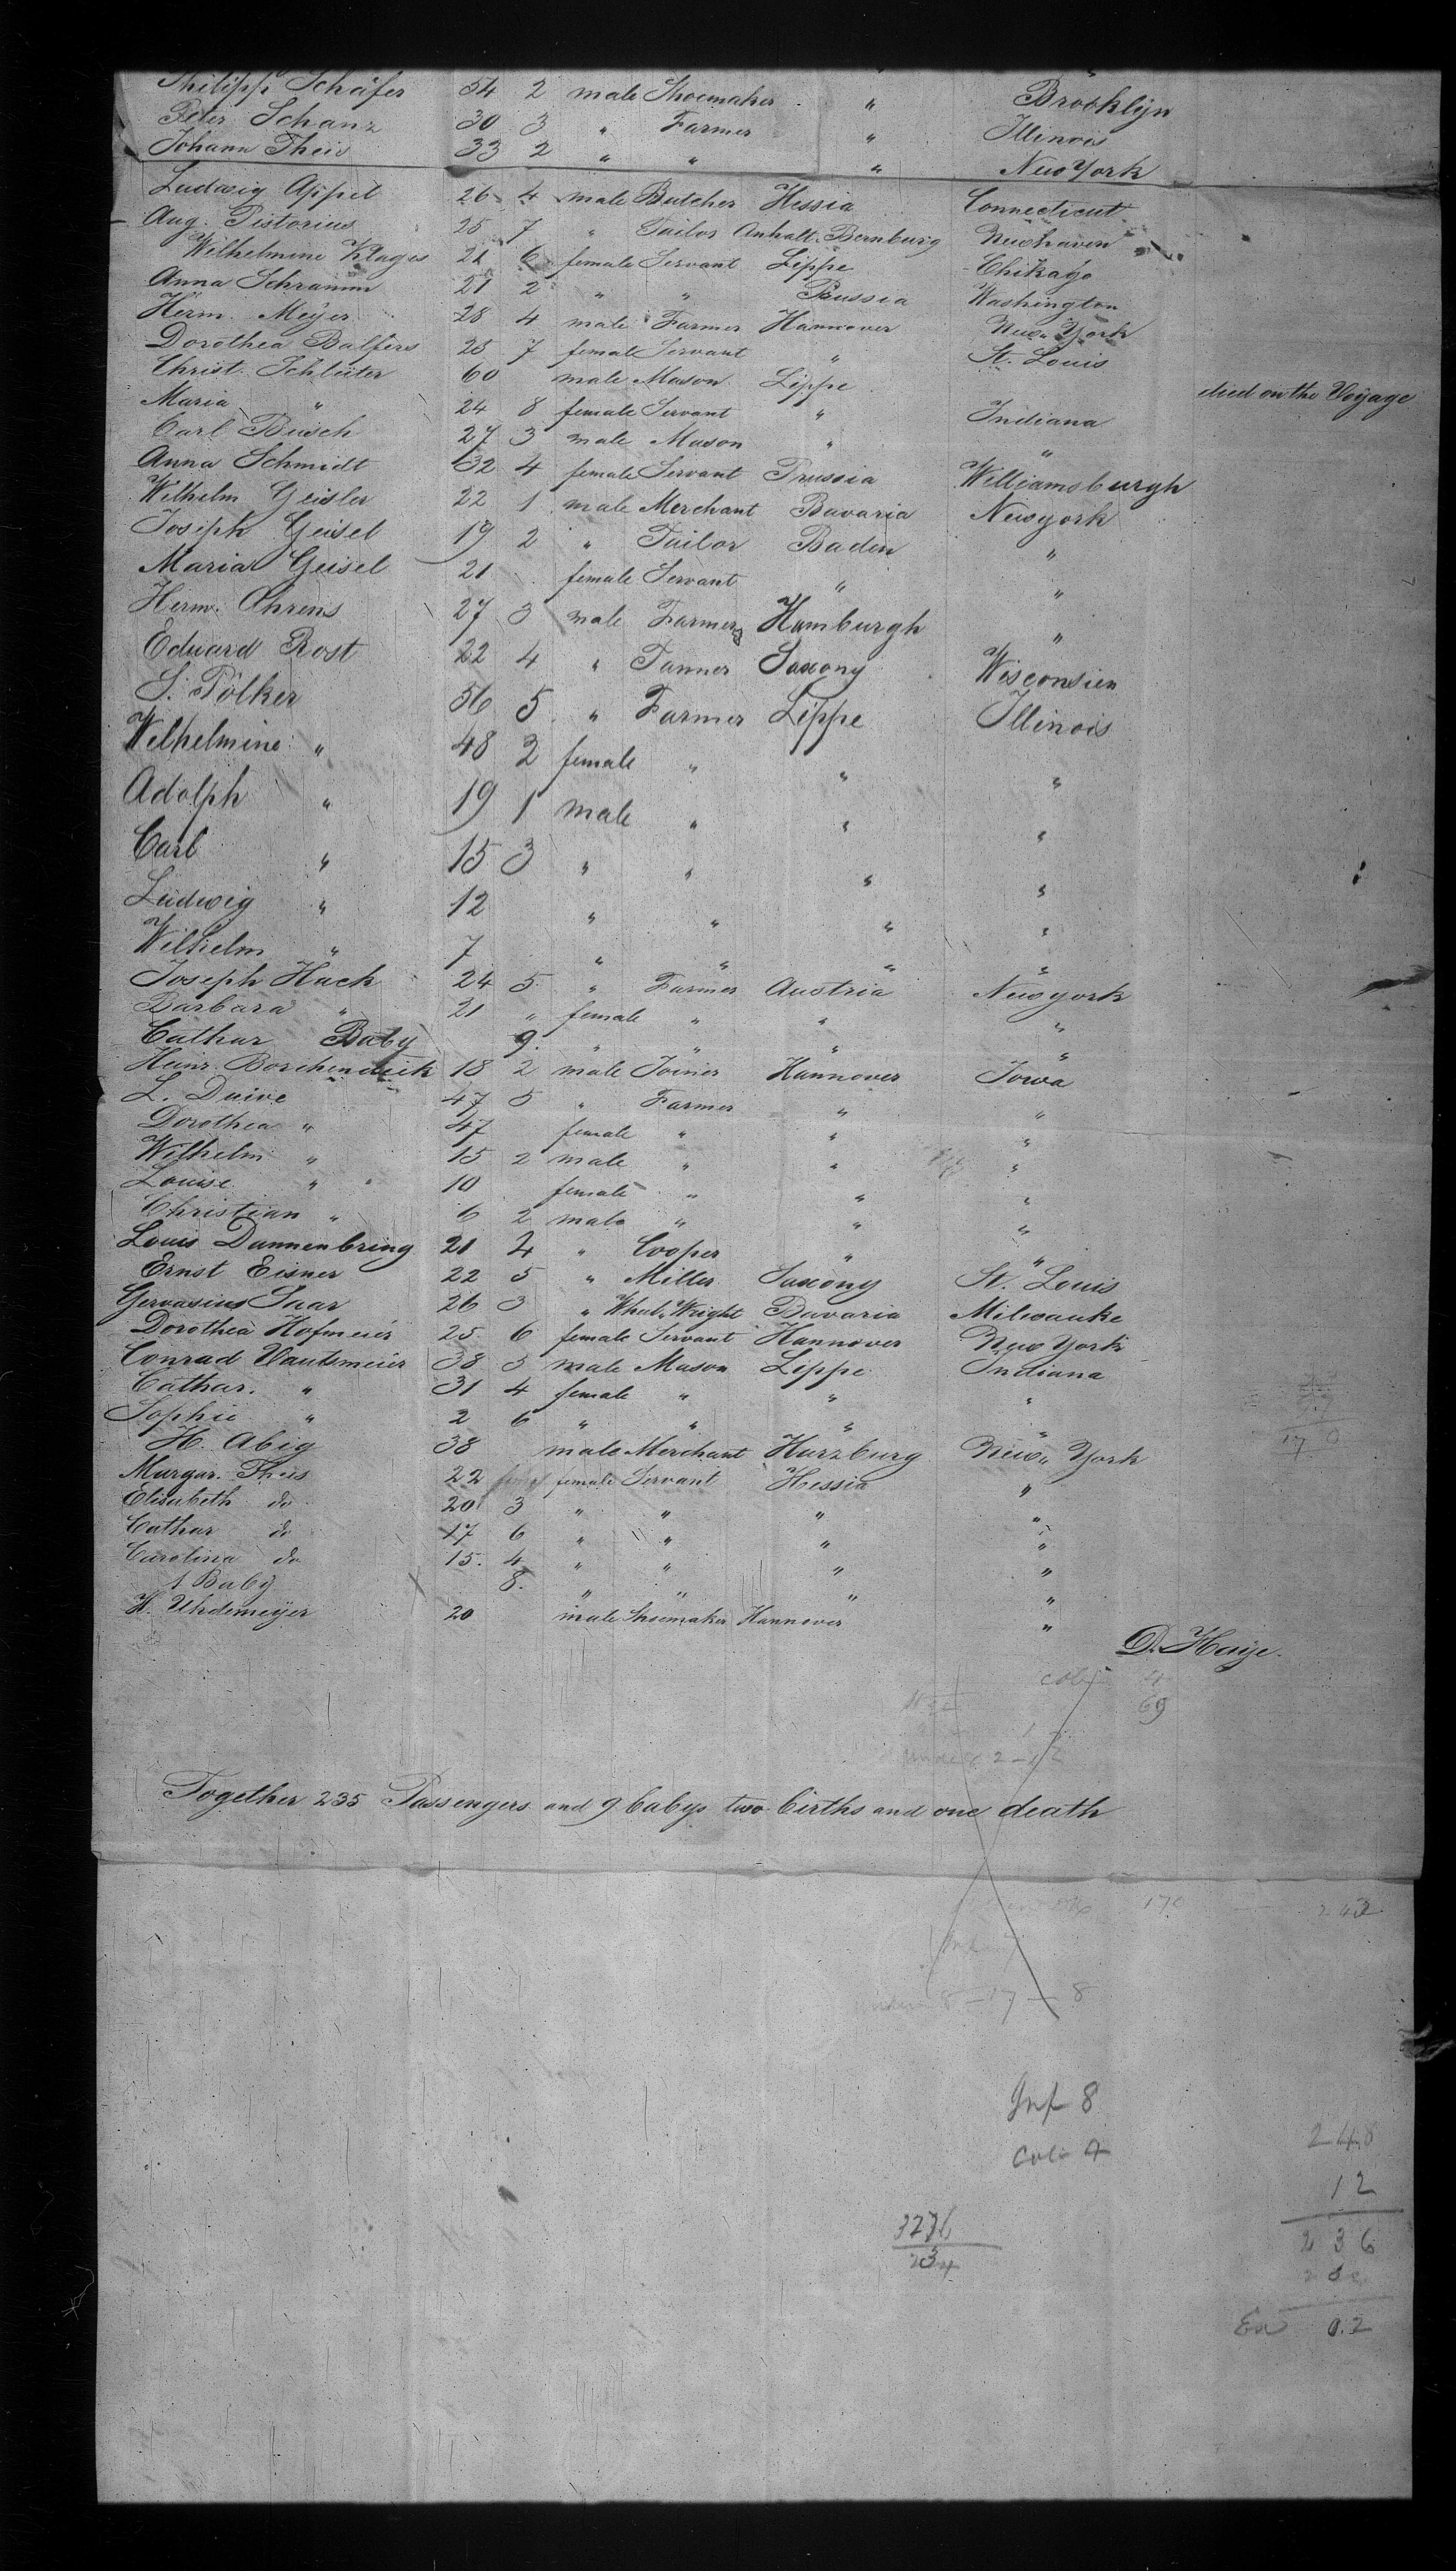 Philipp Schäfer 54 2 male Shoemaker " Brooklyn
Peter Schanz 30 3 " Farmer " Illinois
Johann Theis 33 2 " " " New York
Ludwig Appel 26 4 male Butcher Hessia Connecticut
Aug. Pistorius 25 7 " Tailor Anhalt-Bernburg Newhaven
Wilhelmine Klages 21 6 female Servant Lippe Chikago
Anna Schramm 21 2 " " Prussia Washington
Herm. Meyer 28 4 male Farmer Hannover New York
Dorothea Balfers 23 7 female Servant " St. Louis
Christ. Schlüter 60 male Mason Lippe died on the Voyage
Maria " 24 8 female Servant " Indiana
Carl Busch 27 3 male Mason " "
Anna Schmidt 32 4 female Servant Prussia Williamsburgh
Wilhelm Geisler 22 1 male Merchant Bavaria Newyork
Joseph Geisel 19 2 " Tailor Baden "
Maria Geisel 21 female Servant " "
Herm. Ahrens 27 3 male Farmer Hamburgh "
Eduard Rost 22 4 " Tanner Saxony Wisconsien
S. Pölker 56 5 " Farmer Lippe Illinois
Wilhelmine " 48 2 female " " "
Adolph " 19 1 male " " "
Carl " 15 3 " " " "
Ludwig " 12 " " " "
Wilhelm " 7 " " " "
Joseph Hach 24 5 " Farmer Austria Newyork
Barbara " 21 " female " " "
Cathar Baby 9. " " " "
Heinr. Borchendiek 18 2 male Joiner Hannover Iowa
L. Duive 47 5 " Farmer " "
Dorothea " 47 female " " "
Wilhelm " 15 2 male " " "
Louise " 10 female " " "
Christian " 6 2 male " " "
Louis Dannenbring 21 4 " Cooper " "
Ernst Eisner 22 5 " Miller Saxony St. Louis
Gervasius Saar 26 3 " Wheel Wright Bavaria Milwauke
Dorothea Hofmeier 25 6 female Servant Hannover New York
Conrad Vautsmeier 38 5 male Mason Lippe Indiana
Cathar. " 31 4 female " " "
Sophie " 2 6 " " " "
H. Abig 38 male Merchant Harzburg New York
Margar. Theis 22 female Servant Hessia "
Elisabeth do 20 3 " " " "
Cathar do 17 6 " " " "
Carolina do 15. 4 " " " "
1 Baby 8. " " " "
H. Uhdemeyer 20 male Shoemaker Hannover "
D. Haye.
69
Together 235 Passengers and 9 babys two births and one death
170 243
under 8 – 17 – 8
Inf 8
248
12
236
3276
234
0.2